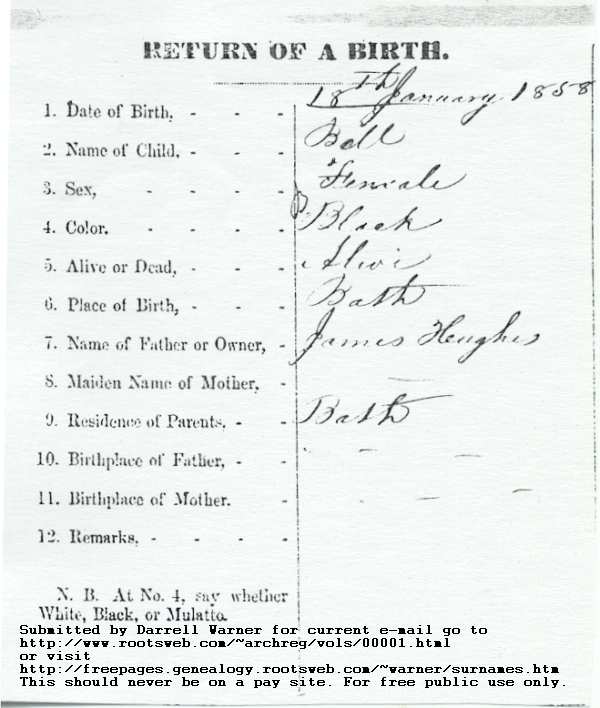 RETURN OF A BIRTH.
1. Date of Birth, - - - 18th January 1858
2. Name of Child, - - - Bell
3. Sex, - - - - Female
4. Color. - - - - Black
5. Alive or Dead, - - - Alive
6. Place of Birth, - - - Bath
7. Name of Father or Owner, - James Hughes
8. Maiden Name of Mother, - —
9. Residence of Parents, - - Bath
10. Birthplace of Father, - - - - -
11. Birthplace of Mother. - - -
12. Remarks, - - - -
N. B. At No. 4, say whether
White, Black, or Mulatto.
Submitted by Darrell Warner for current e-mail go to
http://www.rootsweb.com/~archreg/vols/00001.html
or visit
http://freepages.genealogy.rootsweb.com/~warner/surnames.htm
This should never be on a pay site. For free public use only.